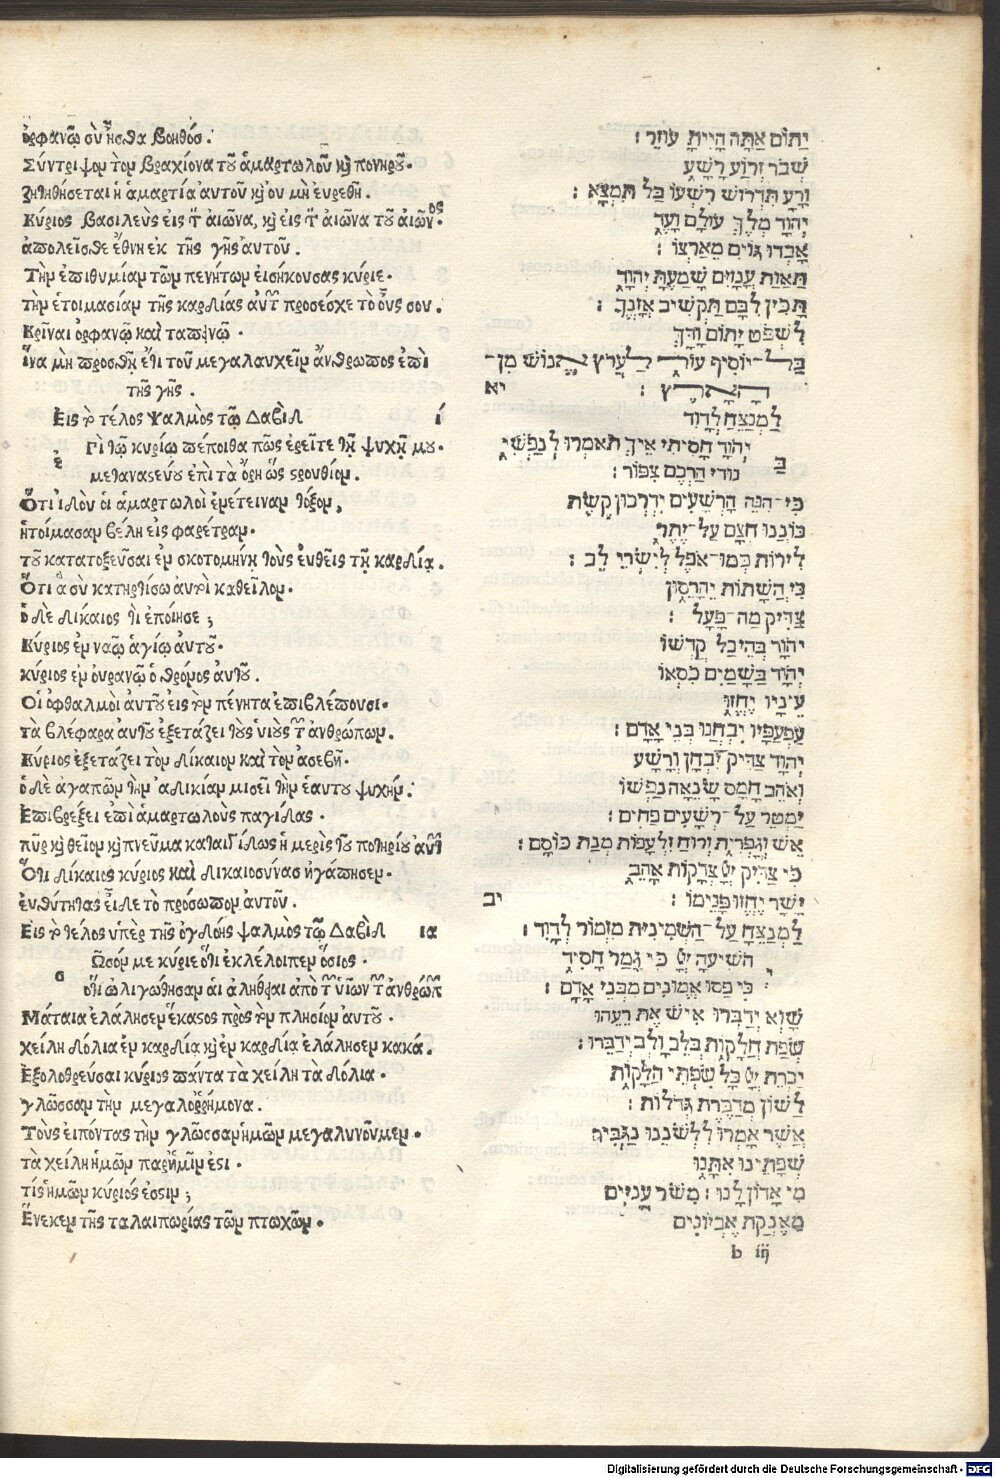 ὀρφανῷ σὺ ἦσθα βοηθόσ.
Σύντριψομ τὸμ βραχίονα τοῦ ἁμαρτωλοῦ καὶ πονηροῦ.
ζητηθήσεται ἡ ἁμαρτία ἀυτοῦ καὶ ου μὴ ἑυρεθῆ.
Κύριος βασιλεὺς εἰς τὸμ αἰῶνα, καὶ εἰς τὸμ αἰῶνα τοῦ αἰῶνος.
ἀπολεῖσθε ἔθνη εκ τῆς γῆς ἀυτοῦ.
Τὴμ ἐπιθυμίαμ τῶμ πενήτωμ ἐισήκουσας κύριε.
τὴμ ἑτοιμασίαμ τῆς καρδίας ἀυτῶμ προσέσχε τὸ οὖς σου.
Κρῖναι ὀρφανῷ καὶ ταπεινῷ.
ἵνα μὴ προσθῇ ἔτι τοῦ μεγαλαυχεῖμ ἄνθρωπος ἐπὶ
τῆς γῆς.
Εις τὸ τέλος ψαλμὸς τῷ Δαβίδ ί
Γὶ τῷ κυρίῳ πέποιθα πῶς ἐρεῖτε τῇ ψυχῇ μου.
ἐ
μεταναστεύου ἐπὶ τὰ ὄρη ὡς στρουθίομ.
Ὅτι ἰδοὺ ὁι ἁμαρτωλοὶ ἐνέτειναμ τόξομ,
ἡτοίμασαμ βέλη εἰς φαρέτραμ.
τοῦ κατατοξεῦσαι ἐμ σκοτομήνῃ τοὺς ἐυθεῖς τῇ καρδίᾳ.
Ὅτι ἃ σὺ κατηρτίσω ἀυτοὶ καθεῖλομ.
ὁ δὲ δίκαιος τὶ ἐποίησε;
Κύριος ἐμ ναῷ ἁγίῳ ἀυτοῦ.
κύριος ἐμ ὀυρανῷ ὁ θρόμος ἀυτοῦ.
Οἱ ὀφθαλμοὶ ἀυτοῦ εἰς τὸμ πένητα ἐπιβλέπουσι.
τὰ βλέφαρα ἀυτοῦ ἐξετάζει τοὺς υἱοὺς τῶμ ἀνθρώπωμ.
Κύριος ἐξετάζει τὸμ δίκαιομ καὶ τὸμ ἀσεβῆ.
ὁ δὲ ἀγαπῶμ τὴμ ἀδικίαμ μισεῖ τὴμ ἑαυτοῦ ψυχήμ.
Ἐπιβρέξει ἐπὶ ἁμαρτωλοὺς παγίδας.
πῦρ καὶ θεῖομ καὶ πνεῦμα καταιγίδος ἡ μερὶς τοῦ ποτηρίου ἀυτῶμ
Ὅτι δίκαιος κύριος καὶ δικαιοσύνας ἠγάπησεμ.
ἐυθύτητας εἶδε τὸ πρόσωπομ ἀυτοῦ.
Εις τὸ τελος ὑπὲρ τῆς ὀγδόης ψαλμὸς τῷ Δαβίδ ια
Ὦσόμ με κύριε ὅτι ἐκλέλοιπεμ ὅσιος.
ο
ὅτι ὠλιγώθησαμ ἁι ἀλήθειαι ἀπὸ τῶμ υἱῶμ τῶμ ἀνθρώπ
Μάταια ἐλάλησεμ ἕκαστος πρὸς τὸμ πλησίομ ἀυτοῦ.
χείλη δόλια ἐμ καρδίᾳ καὶ ἐμ καρδίᾳ ἐλάλησεμ κακά.
Ἐξολοθρεύσαι κύριος πάντα τὰ χείλη τὰ δόλια.
γλῶσσαμ τὴμ μεγαλοῤῥήμονα.
Τοὺς ἐιπόντας τὴμ γλῶσσαμ ἡμῶμ μεγαλυνοῦμεμ.
τὰ χείλη ἡμῶμ παρ' ἡμῖμ ἐστι.
τίς ἡμῶμ κύριός ἐστιμ;
Ἕνεκεμ τῆς ταλαιπωρίας τῶμ πτωχῶμ.
יָתוֹם אַתָּה הָיִיתָ עוֹזֵר׃
שְׁבֹר זְרוֹעַ רָשָׁע
וָרָע תִּדְרוֹשׁ רִשְׁעוֹ בַל תִּמְצָא׃
יְהוָֹה מֶלֶךְ עוֹלָם וָעֶד
אָבְדוּ גוֹיִם מֵאַרְצוֹ׃
תַּאֲוַת עֲנָוִים שָׁמַעְתָּ יְהוָֹה
תָּכִין לִבָּם תַּקְשִׁיב אָזְנֶךָ׃
לִשְׁפֹּט יָתוֹם וָדָךְ
בַּל־יוֹסִיף עוֹד לַעֲרֹץ אֱנוֹשׁ מִן־
הָאָרֶץ׃ יא
לַמְנַצֵּחַ לְדָוִד
יְהוָֹה חָסִיתִי אֵיךְ תֹּאמְרוּ לְנַפְשִׁי
בַּ
נוּדִי הַרְכֶם צִפּוֹר׃
כִּי־הִנֵּה הָרְשָׁעִים יִדְרְכוּן קֶשֶׁת
כּוֹנְנוּ חִצָּם עַל־יֶתֶר
לִירוֹת בְּמוֹ־אֹפֶל לְיִשְׁרֵי לֵב׃
כִּי הַשָּׁתוֹת יֵהָרֵסוּן
צַדִּיק מַה־פָּעָל׃
יְהוָֹה בְּהֵיכַל קָדְשׁוֹ
יְהוָֹה בַּשָּׁמַיִם כִּסְאוֹ
עֵינָיו יֶחֱזוּ
עַפְעַפָּיו יִבְחֲנוּ בְּנֵי אָדָם׃
יְהוָֹה צַדִּיק יִבְחָן וְרָשָׁע
וְאֹהֵב חָמָס שָׂנְאָה נַפְשׁוֹ
יַמְטֵר עַל־רְשָׁעִים פַּחִים׃
אֵשׁ וְגָפְרִית וְרוּחַ זִלְעָפוֹת מְנָת כּוֹסָם׃
כִּי צַדִּיק יְיָ צְדָקוֹת אָהֵב
יָשָׁר יֶחֱזוּ פָנֵימוֹ׃ יב
לַמְנַצֵּחַ עַל־הַשְּׁמִינִית מִזְמוֹר לְדָוִד׃
הוֹשִׁיעָה יְיָ כִּי גָמַר חָסִיד
כִּי פַסּוּ אֱמוּנִים מִבְּנֵי אָדָם׃
שָׁוְא יְדַבְּרוּ אִישׁ אֶת רֵעֵהוּ
שְׂפַת חֲלָקוֹת בְּלֵב וָלֵב יְדַבֵּרוּ׃
יַכְרֵת יְיָ כָּל שִׂפְתֵי חֲלָקוֹת
לָשׁוֹן מְדַבֶּרֶת גְּדֹלוֹת׃
אֲשֶׁר אָמְרוּ לִלְשֹׁנֵנוּ נַגְבִּיר
שְׂפָתֵינוּ אִתָּנוּ
מִי אָדוֹן לָנוּ׃ מִשֹּׁד עֲנִיִּים
מֵאֶנְקַת אֶבְיוֹנִים
b iij
Digitalisierung gefördert durch die Deutsche Forschungsgemeinschaft - DFG